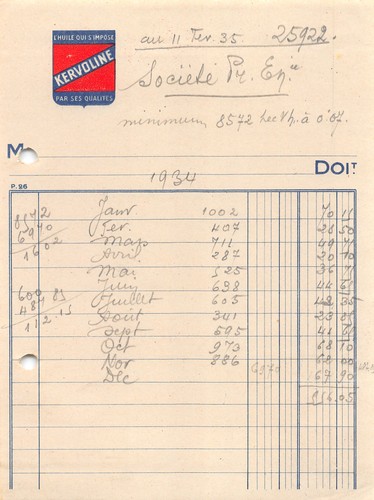 L'HUILE QUI S'IMPOSE
KERVOLINE
PAR SES QUALITÉS
au 11 Fev. 35. 25922.
Société Pr. En.ie
minimum 8572 hec Wh. à 0'07.
M
DOIT.
1934
P. 26
8572 Janv 1002 70 15
6970 Fev. 407 28 50
1602 Mars 711 49 75
Avril 287 20 10
Mai 525 36 75
Juin 698 44 65
600 Juillet 605 42 35
487 85 Août 341 23 85
112 15 Sept 595 41 65
Oct 973 68 10
Nov 886 6970 62 00
Dec 67 90